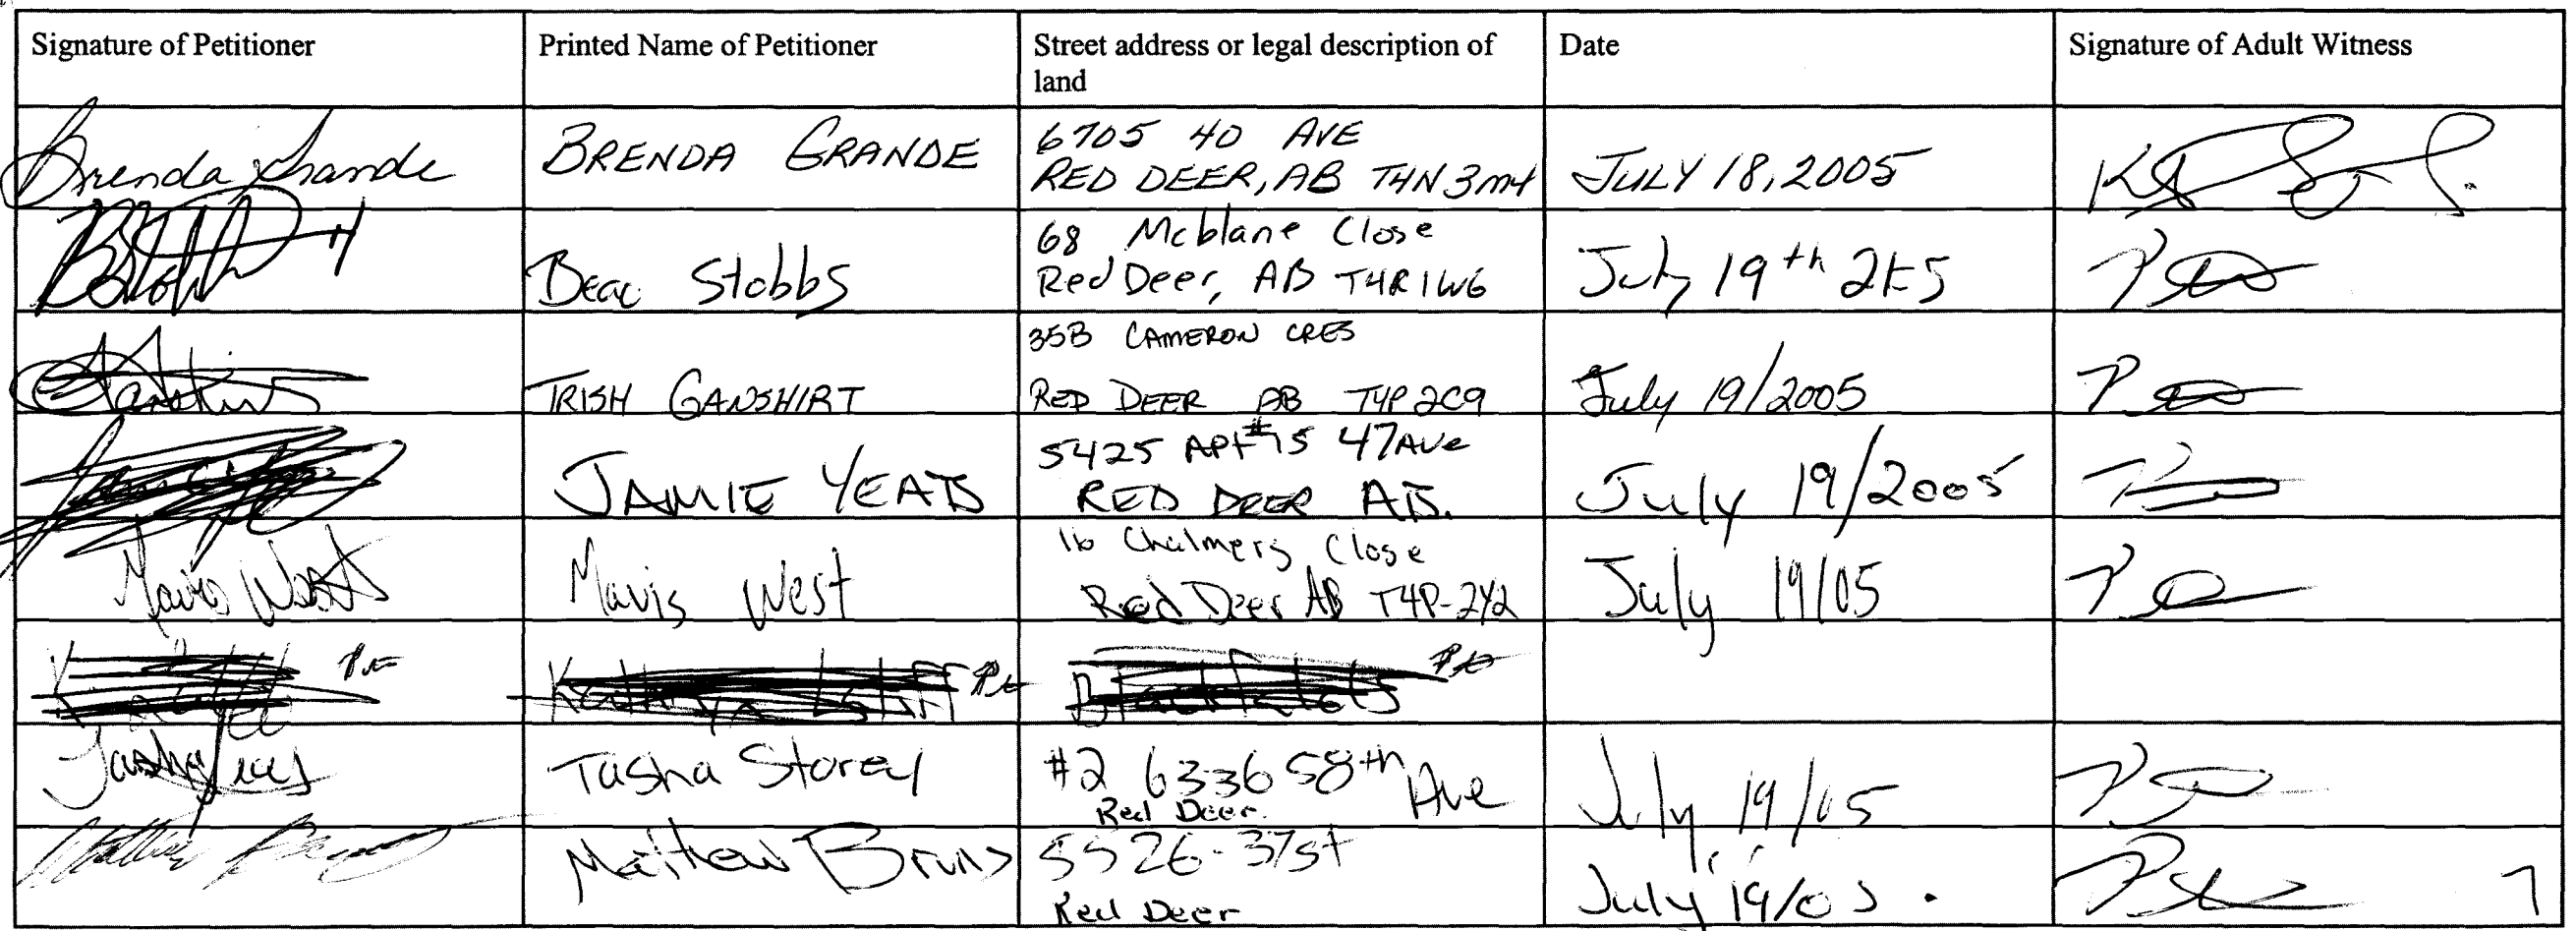 Signature of Petitioner
Printed Name of Petitioner
Street address or legal description of
land
Date
Signature of Adult Witness
Brenda Grande
BRENDA GRANDE
6705 40 AVE
RED DEER, AB T4N 3M4
JULY 18, 2005
Stobbs
68 McBlane Close
Red Deer, AB T4R 1W6
July 19th 2k5
TRISH GANSHIRT
35B CAMERON CRES
RED DEER AB T4P 2C9
July 19/2005
JAMIE YEATS
5425 APt #15 47 AVe
RED DEER AB.
July 19/2005
Mavis West
Mavis West
16 Chalmers Close
Red Deer AB T4P-2Y2
July 19/05
Tasha Storey
#2 6336 58th Ave
Red Deer.
July 19/05
Mathew Bruns
5526-37st
Red Deer
July 19/05.
7